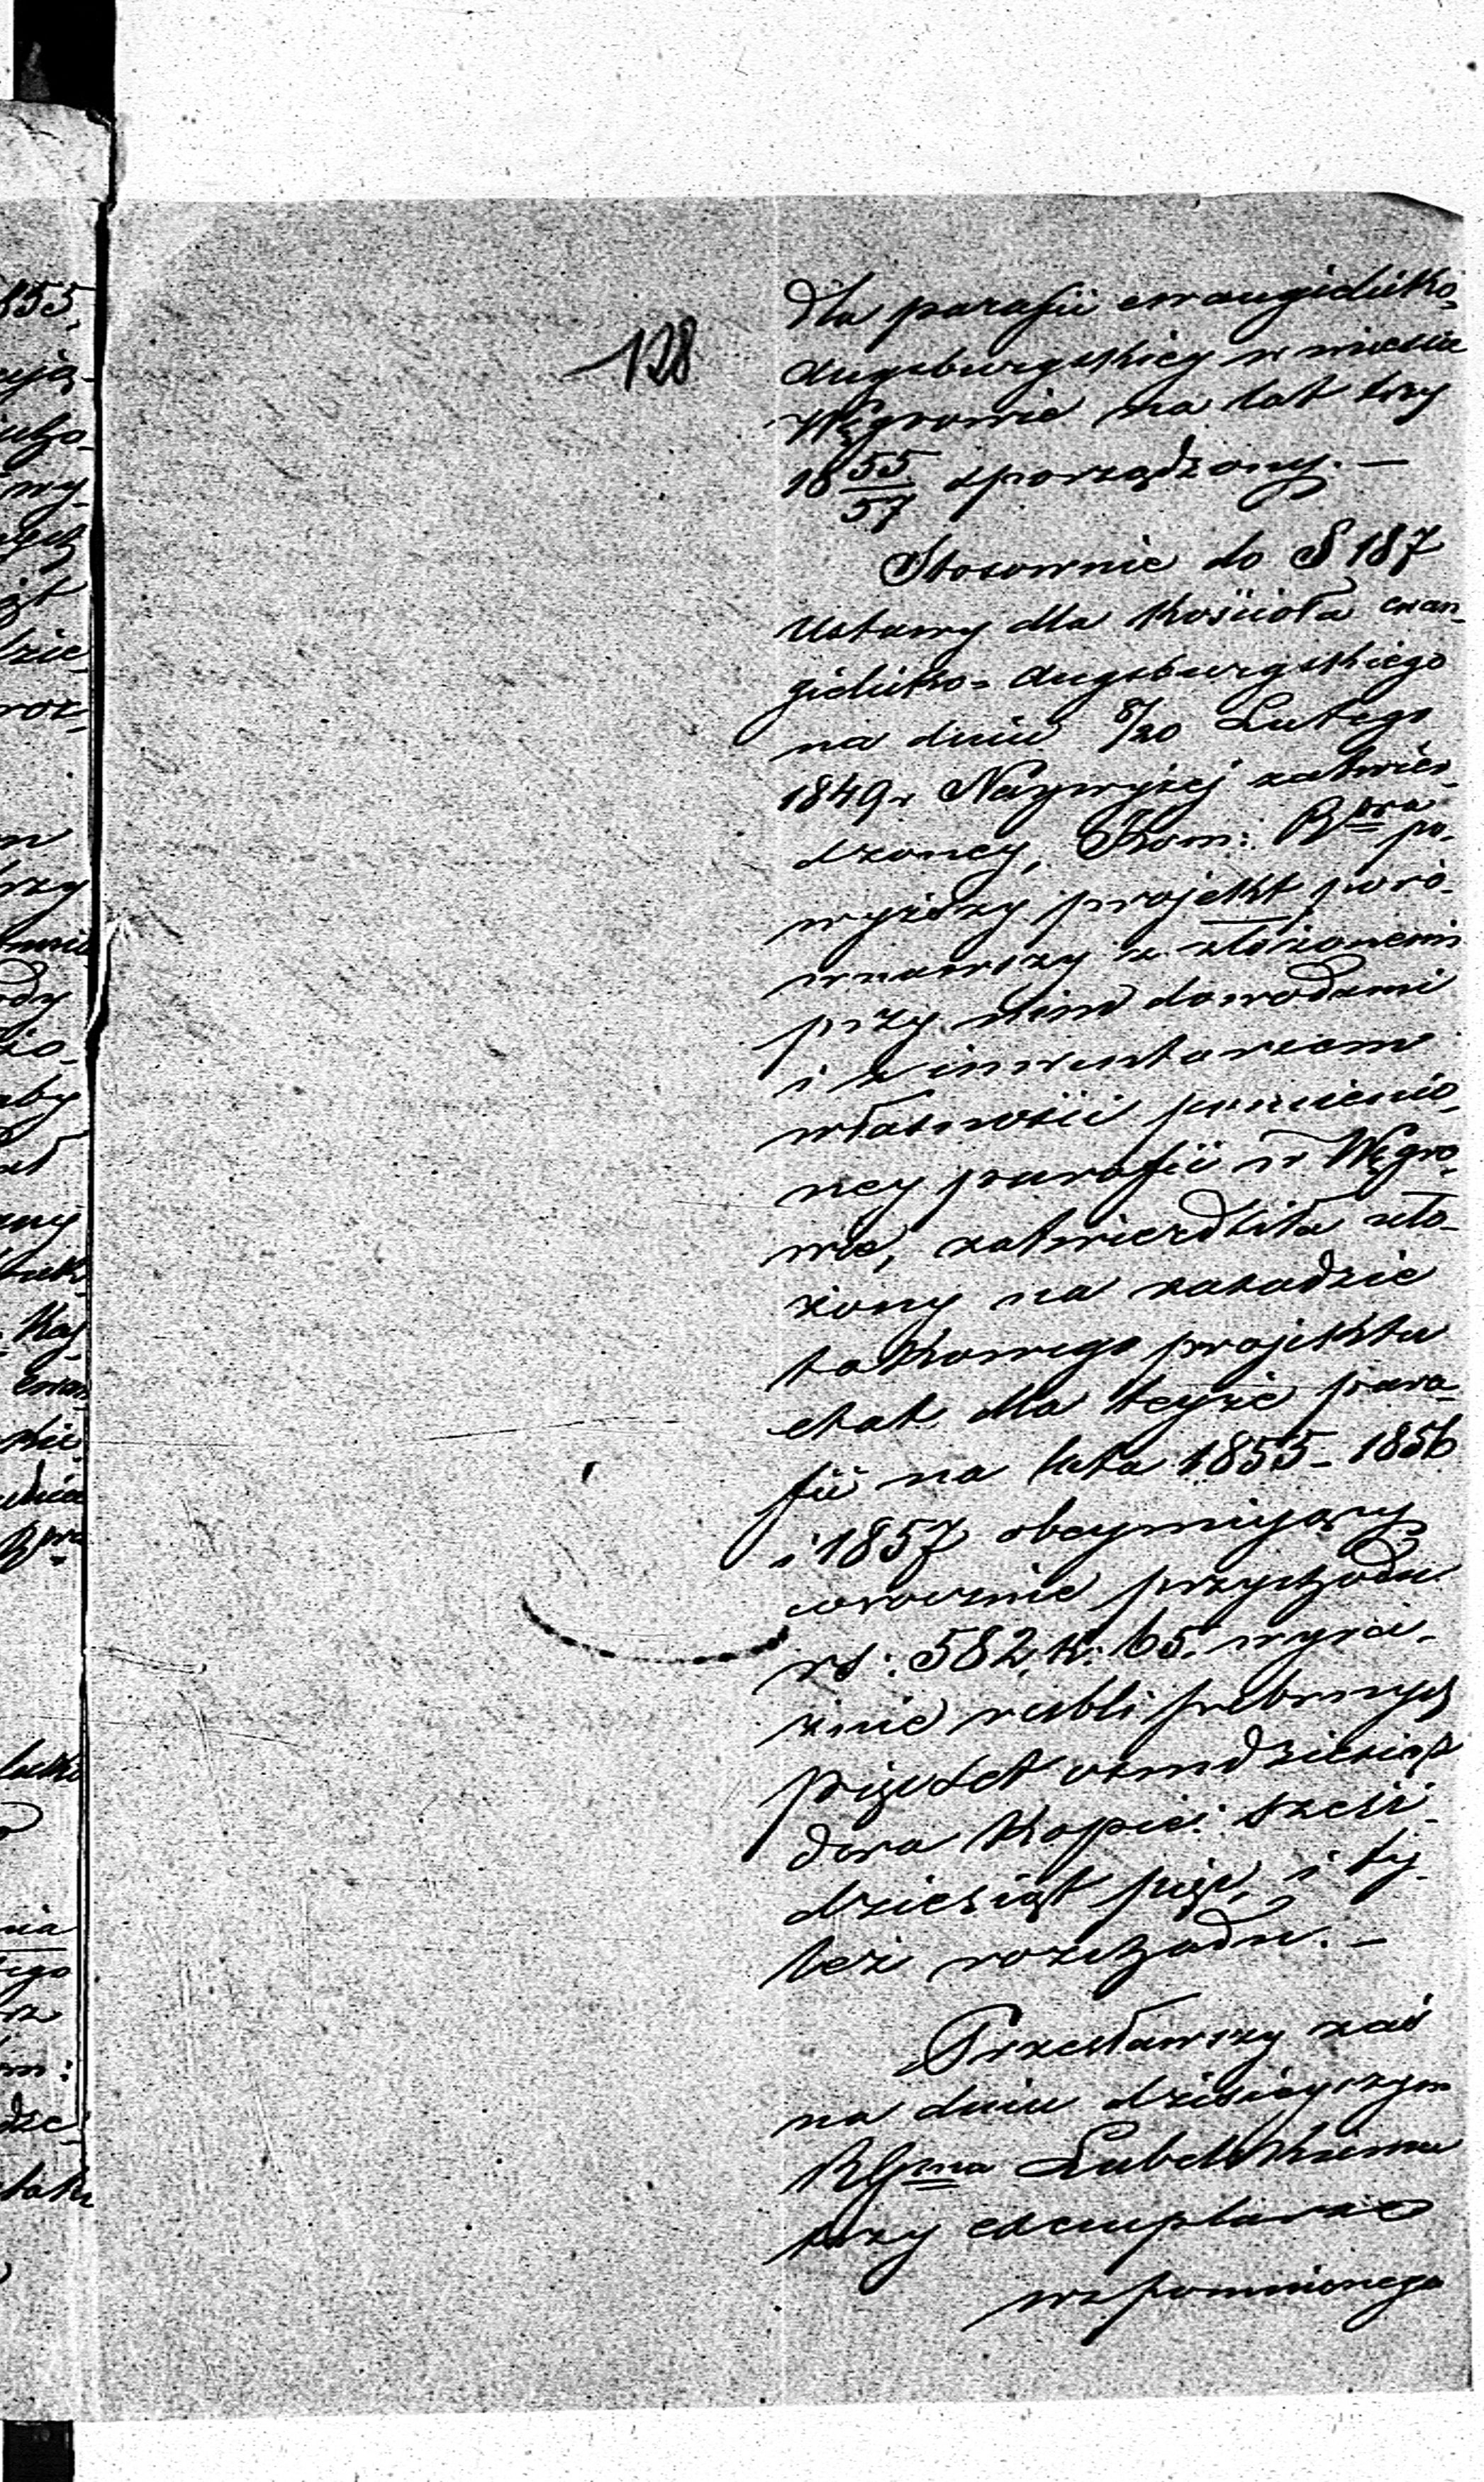 128
dla parafii ewangielicko-
Augsburgskiey w mieście
Węgrowie na lat trzy
18 55/57 sporządzony. —
Stosownie do § 187
Ustawy dla Kościoła ewan-
gielicko-Augsburgskiego
na dniu 8/20 Lutego
1849 r Naywyżej zatwier-
dzoney, Kom: Rzwa po-
wyższy projekt poró-
wnawszy z złożonemi
przy nim dowodami
i z inwentarzem
własności pomienio-
ney parafii w Węgro-
wie, zatwierdziła uło-
żony na zasadzie
takowego projektu
etat dla teyże para-
fii na lata 1855 - 1856
i 1857 obeymujący
corocznie przychodu
rs: 582, k: 65. wyra-
źnie rubli srebrnych
pięćset ośmdziesiąt
dwa kopie: sześć-
dziesiąt pięć, i ty-
leż rozchodu. —
Przesławszy zaś
na dniu dzisieyszym
RGma Lubelskiemu
trzy exemplarze
wspomnionego